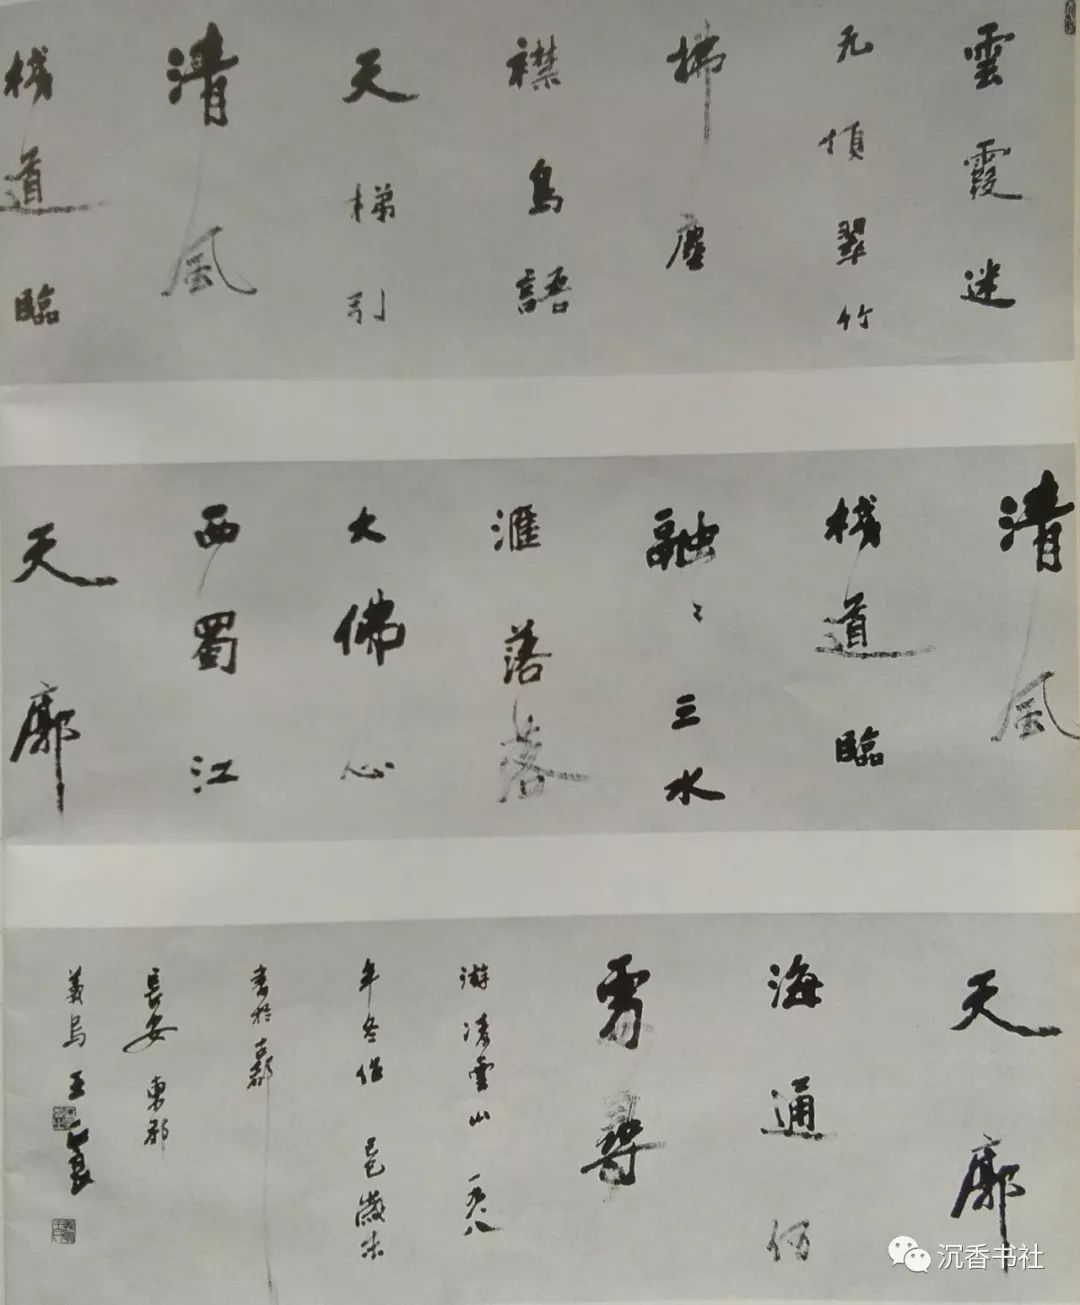 雲霞迷
九頃翠竹
拂塵
襟鳥語
天梯引
清風
棧道臨
清風
棧道臨
融〻三水
滙落落
大佛心
西蜀江
天廓
天廓
海通何
處尋
游凌雲山 一九八
年冬作 己巳歲末
書於古都
長安東郊
義烏王
沉香书社